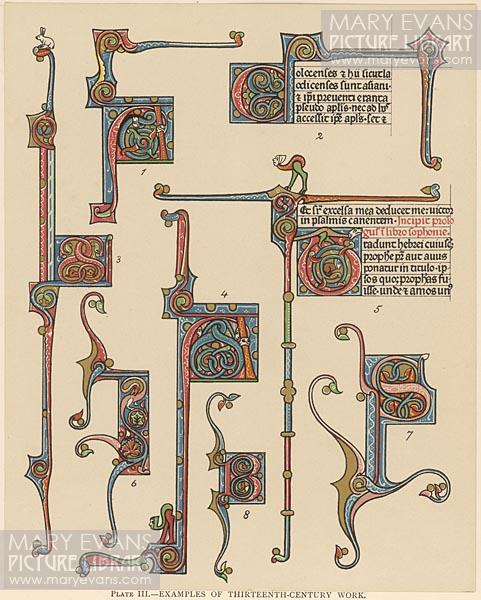 MARY EVANS
PICTURE LIBRARY
www.maryevans.com
1
olocenses & hii sicut la
odicenses sunt asiani·
& ip̄i p̄reventi erant a
pseudo ap̄lis· nec ad hos
accessit ip̄e ap̄ls· set &
2
3
4
Et sr̄ excelsa mea deducet me: victor
in psalmis canentem· Incipit prolo
gus
libro sophonie·
tradunt hebrei cuius
prophe
pr̄ aut avus
ponatur in titulo· ip
sos quoq; prophetas fu
isse· unde & amos
5
6
7
8
MARY EVANS
PICTURE LIBRARY
www.maryevans.com
MARY EVANS
PICTURE LIBRARY
www.maryevans.com
PLATE III.—EXAMPLES OF THIRTEENTH-CENTURY WORK.